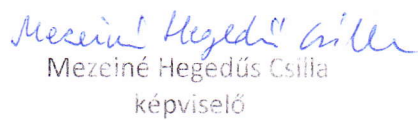 Mezeiné Hegedűs Csilla
Mezeiné Hegedűs Csilla
képviselő